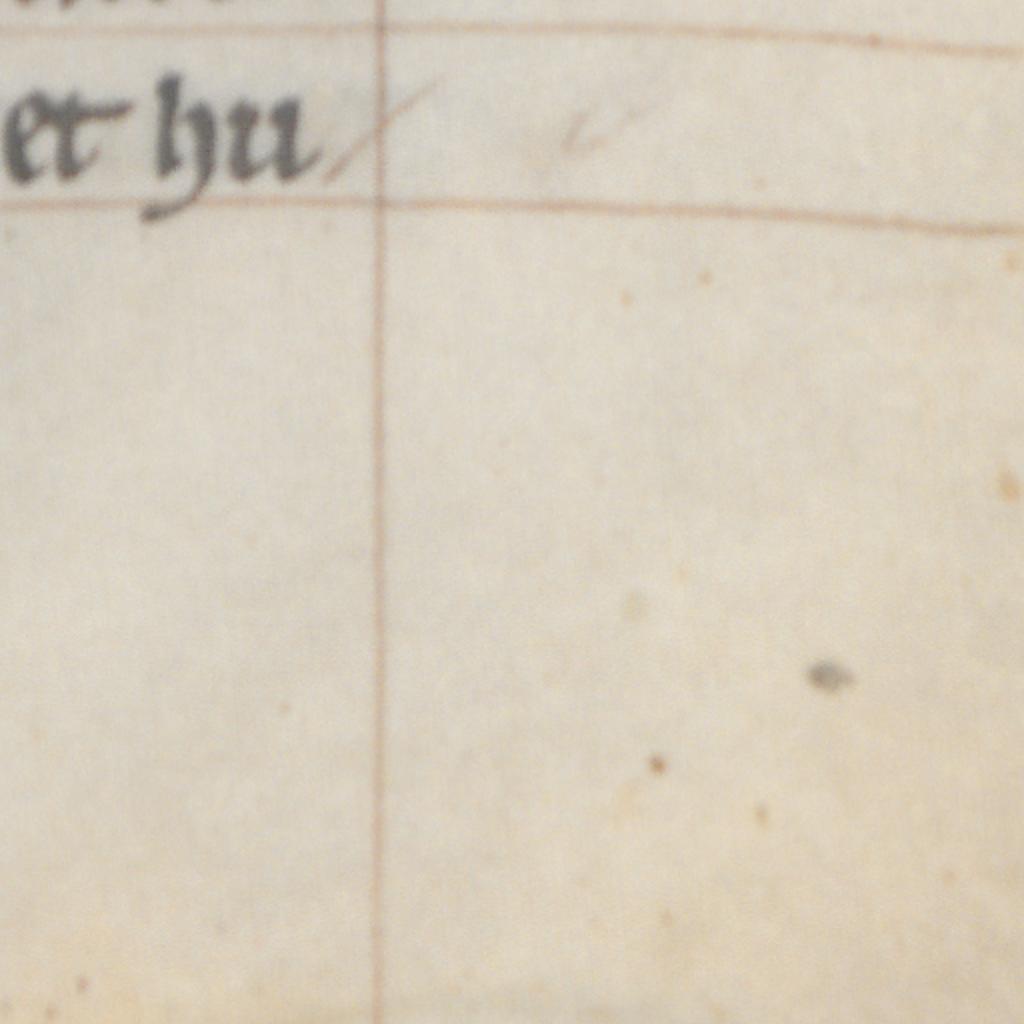 et hu/